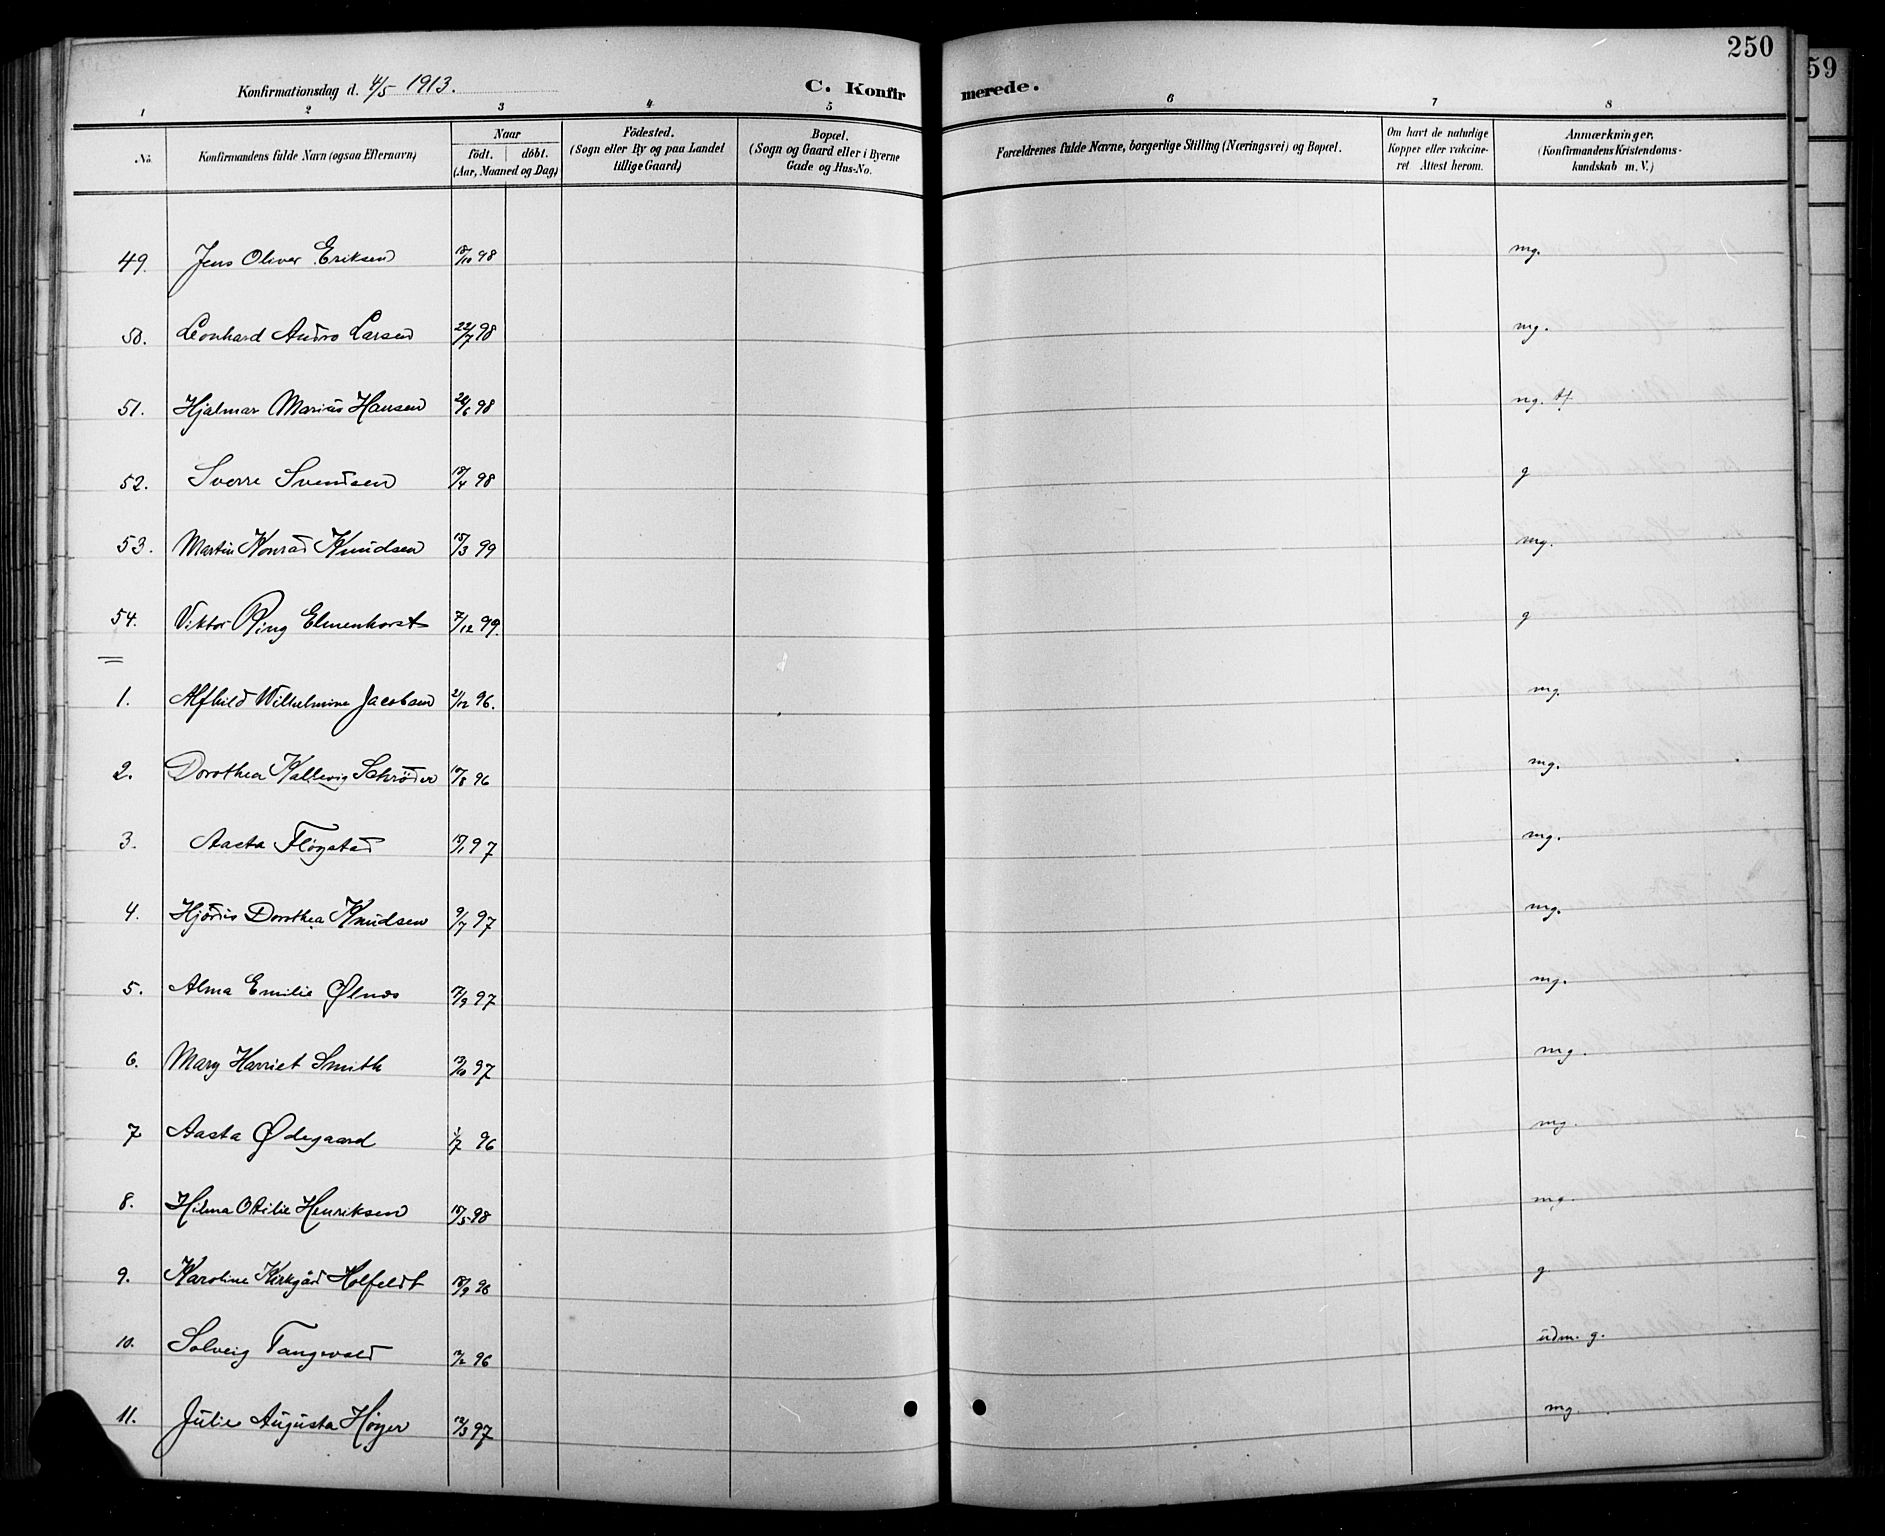 250
59
Konfirmationsdag d. 4/5 1913. C. Konfir merede.
1 2 3 4 5 6 7 8
No. Konfirmandens fulde Navn (ogsaa Efternavn) Naar födt. döbt. (Aar, Maaned og Dag) Födested. (Sogn eller By og paa Landet tillige Gaard) Bopæl. (Sogn og Gaard eller i Byerne Gade og Hus-No. Forældrenes fulde Navne, borgerlige Stilling (Næringsvei) og Bopæl. Om havt de naturlige Kopper eller vakcineret Attest herom. Anmærkninger. (Konfirmandens Kristendomskundskab m. V.)
49. Jens Oliver Eriksen 18/10 98 mg.
50. Leonhard Andro Larsen 22/7 98 mg.
51. Hjalmar Marius Hansen 24/6 98 mg.
52. Sverre Svendsen 18/4 98 g
53. Martin Konrad Knudsen 15/3 99 mg.
54. Viktor Ring Elmenhorst 7/12 99. g
1. Alfhild Wilhelmine Jacobsen 21/12 96. mg.
2. Dorothea Kallevig Schrøder 10/8 96 mg.
3. Aasta Fløgstad 15/1 97 mg.
4. Hjørdis Dorothea Knudsen 9/7 97 mg.
5. Alma Emilie Ølnes 17/9 97 mg.
6. Mary Harriet Smith 13/10 97 mg.
7 Aasta Ødegaard 1/7 96 mg.
8. Hilma Otilie Henriksen 15/5 98 mg.
9. Karoline Kirkgård Holfeldt 18/9 96 g
10. Solveig Tangevald 12/2 96 udm. g.
11. Julie Augusta Høyer 12/3 97 mg.